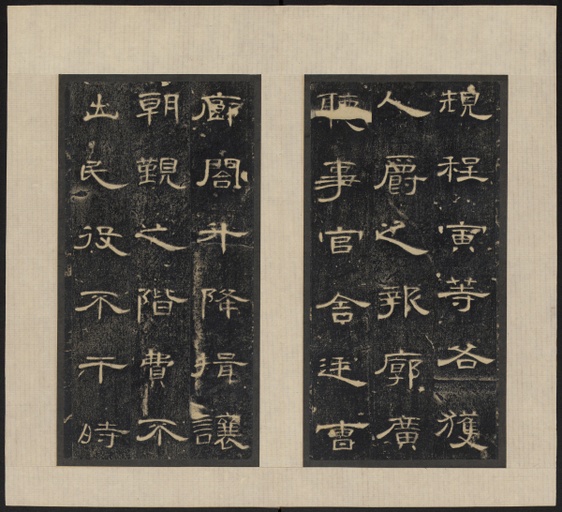 規程寅等各獲
人爵之報廓廣
聽事官舍廷曹
廊閤升降揖讓
朝覲之階費不
出民役不干時